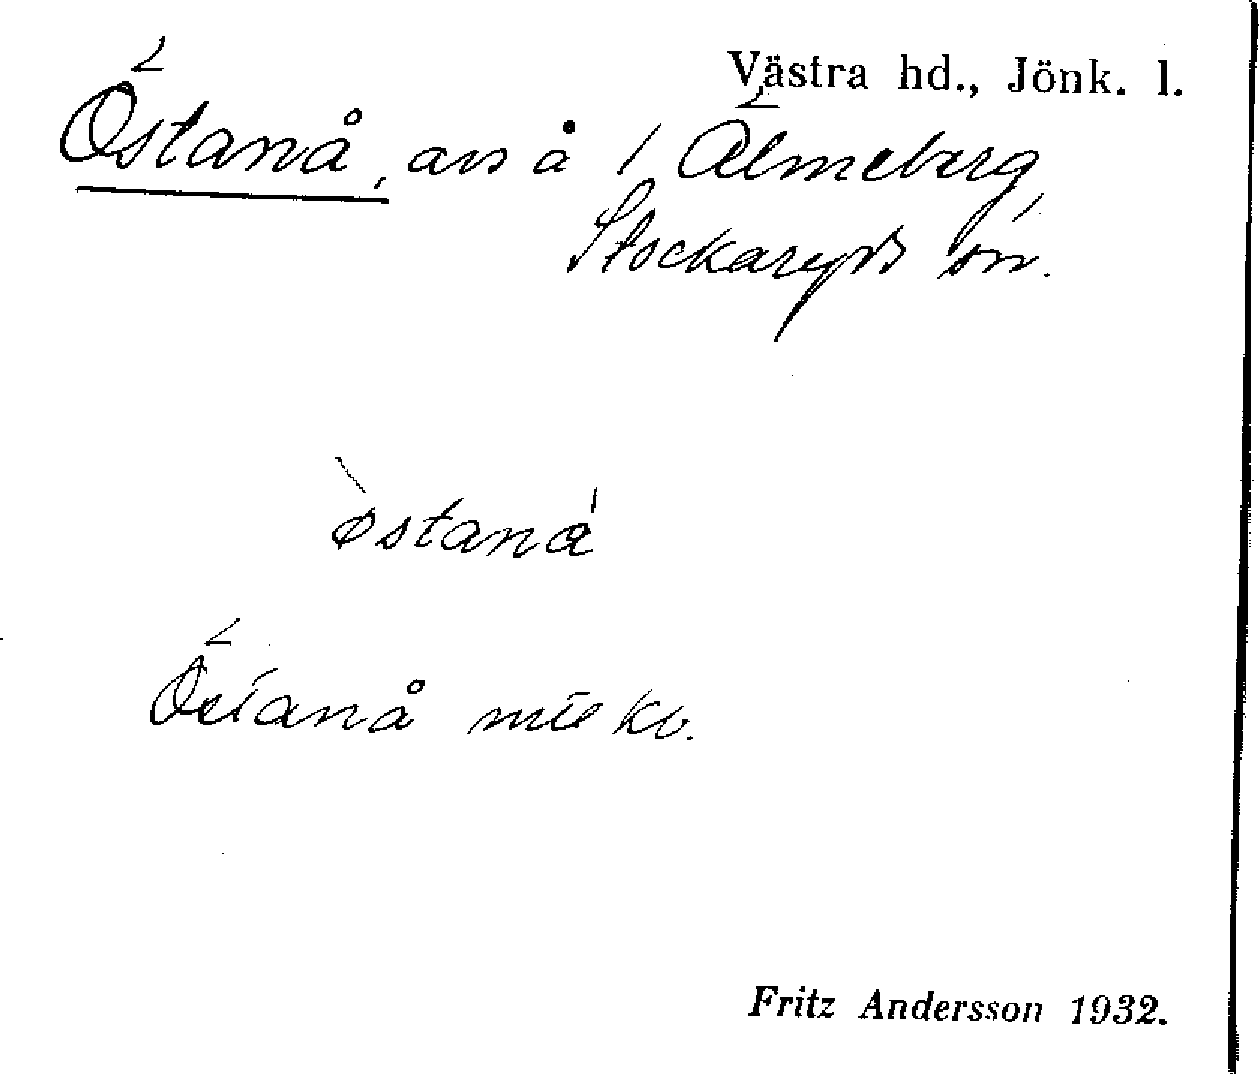 Västra hd., Jönk. l.
Östanå, avs å / Älmeberg,
Stockaryds sn.
østana
Östanå mtskb.
Fritz Andersson 1932.